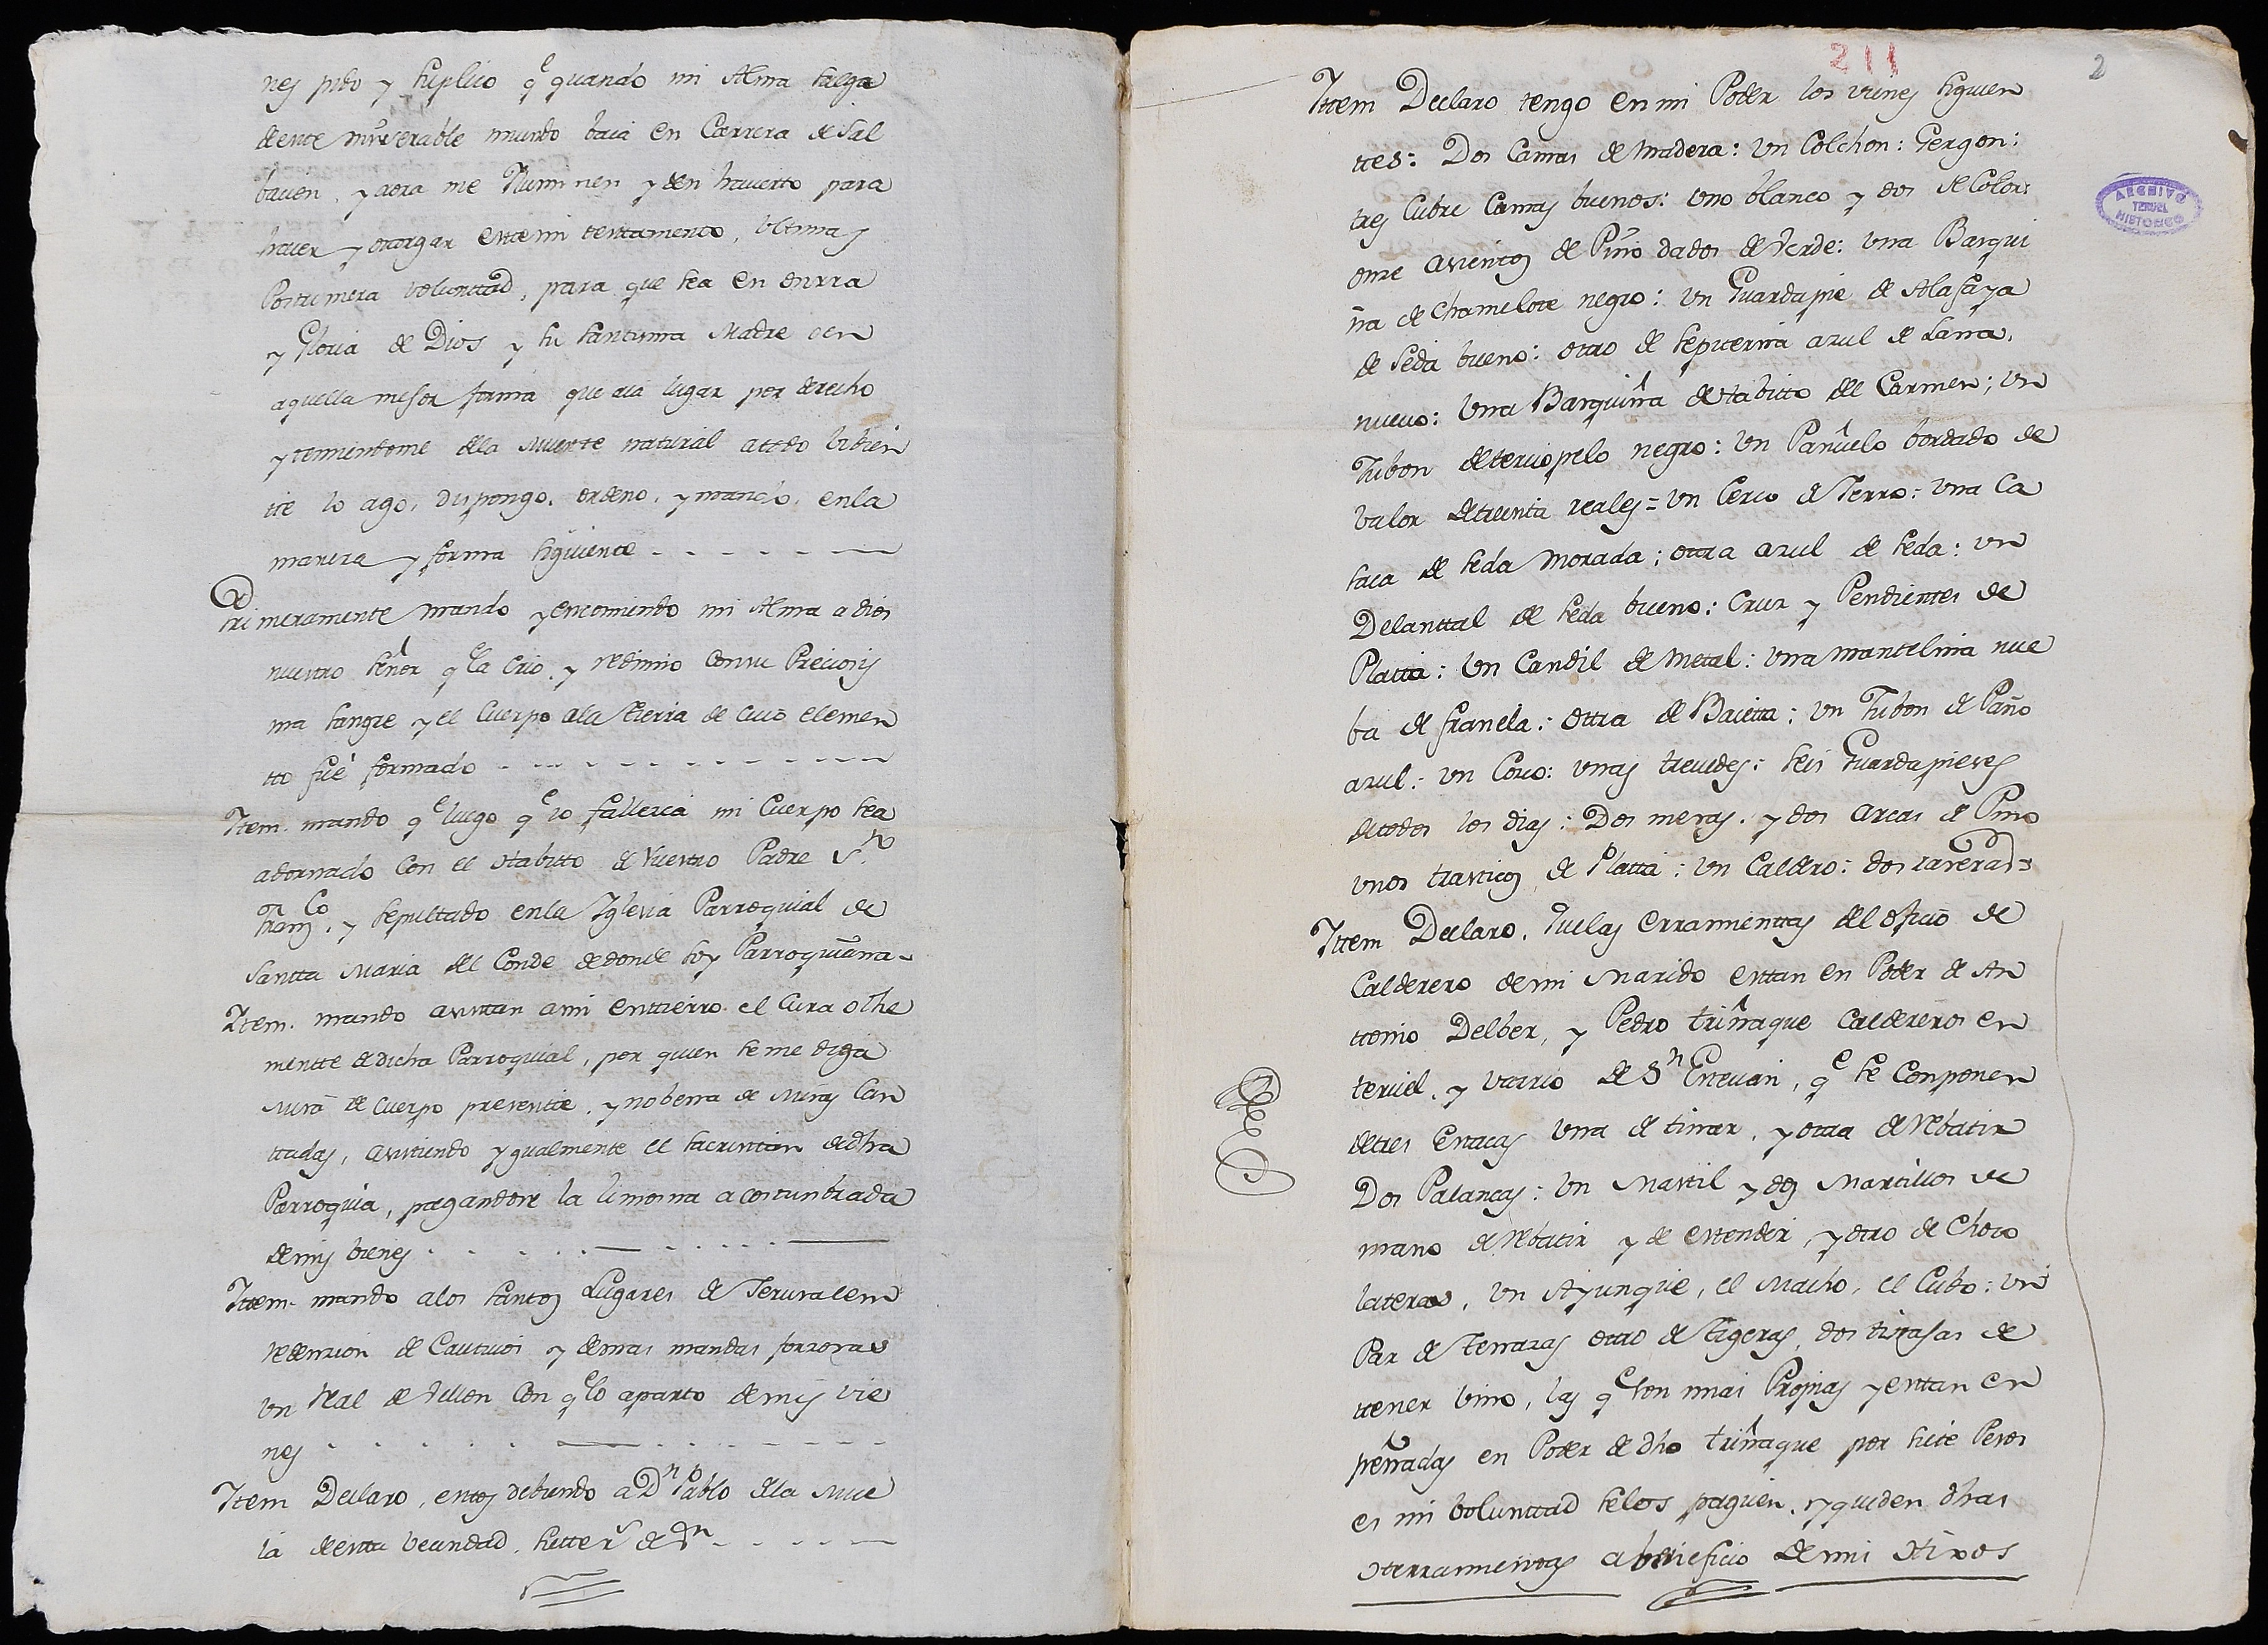 nes pido y suplico qᵉ quando mi Alma salga
de este miserable mundo baia en Carrera de Sal
bacion, y aora me Yluminen y den hacierto para
hacer y otorgar este mi testamento, ultima y
Postrimera voluntad, para que sea en onrra
y Gloria de Dios y su santisima Madre en
aquella mejor forma que aia lugar por derecho
y temiendome de la Muerte natural a todo bibien
tte lo ago, dispongo, ordeno, y mando, en la
manera y forma siguiente
Primeramente mando y encomiendo mi Alma a dios
nuestro señor qᵉ la crio, y redimio con su Preciosis
ma sangre y el Cuerpo a la tierra de cuio elemen
tto fue formado
Item. mando qᵉ luego qᵉ io fallezca mi Cuerpo sea
adornado con el Habitto de Nuestro Padre Sⁿ
Franᶜᵒ, y sepultado en la Yglesia Parroquial de
Santta Maria del Conde de donde soy Parroquiana
Item. mando asistan a mi enttierro el Cura o the
nientte de dicha Parroquial, por quien se me diga
Misa de cuerpo presentte, y nobena de Misas Can
ttadas, asistiendo ygualmente el sacristan de dha
Parroquia, pagandose la limosna acostunbrada
de mis bienes
Ittem. mando a los santos Lugares de Jerusalem
redenzion de Cautivos y demas mandas forzosas
un Real de Vellon con qᵉ lo aparto de mis vie
nes
Item Declaro, estoy debiendo a Dⁿ Pablo de la Mue
la de esta vecindad, siette rˢ de vⁿ
211
2
Ittem Declaro tengo en mi Poder los vienes siguien
ttes: Dos Camas de Madera: Un Colchon: Gergon:
tres Cubre Camas buenos: uno blanco y dos de Color:
onze asientos de Pino dados de Verde: una Basqui
ña de Chamelote negro: un Guardapie de Alafaya
de Seda bueno: otro de sepiterina azul de Lana,
nuevo: Una Basquiña de Habitto del Carmen; un
Jubon de terciopelo negro: Un Pañuelo bordado de
valor de treinta reales = Un Cerco de Ierro: Una Ca
saca de seda Morada; otra azul de seda: un
Delanttal de seda bueno: Cruz y Pendientes de
Platta: Un Candil de Metal: una mantelina nue
ba de franela: ottra de Baietta: un Jubon de Paño
azul: un Cozo: unas treudes: seis Guardapieses
de todos los dias: Dos mesas, y dos arcas de Pino
unos trasticos de Platta: Un Caldero: dos raseras:
Ittem Declaro, que las erramienttas del oficio de
Calderero de mi Marido estan en Poder de An
ttonio Delber, y Pedro triñaque Caldereros en
teruel, y varrio de Sⁿ Estevan, qᵉ se conponen
de tres estacas una de tinar, y otra de rebatir
Dos Palancas: Un Mastil y dos Martillos de
mano de rebatir y de estender, y otro de choco
lateras, un Ayunque, el Macho, el Cubo: un
Par de Tenazas otro de tigeras, dos tinajas de
ttener vino, las qᵉ son mias Propias y estan en
peñadas en Poder de dho triñaque por siete Pesos
es mi boluntad se los paguen, y queden dhas
Herramientas a beneficio de mi Hijos
ARCHIVO
HISTORICO
TERUEL